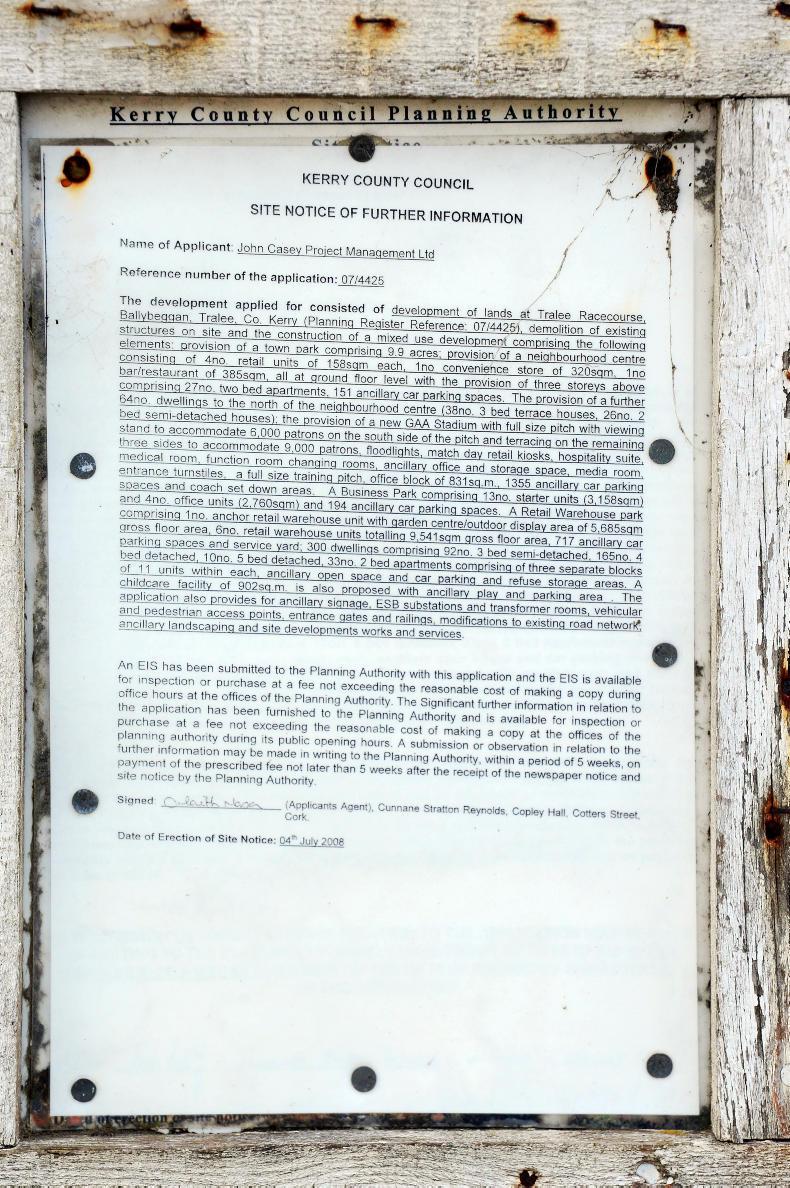 Kerry County Council Planning Authority
KERRY COUNTY COUNCIL
SITE NOTICE OF FURTHER INFORMATION
Name of Applicant: John Casey Project Management Ltd
Reference number of the application: 07/4425
The development applied for consisted of development of lands at Tralee Racecourse,
Ballybeggan, Tralee, Co. Kerry (Planning Register Reference: 07/4425), demolition of existing
structures on site and the construction of a mixed use development comprising the following
elements: provision of a town park comprising 9.9 acres; provision of a neighbourhood centre
consisting of 4no. retail units of 158sqm each, 1no convenience store of 320sqm, 1no
bar/restaurant of 385sqm, all at ground floor level with the provision of three storeys above
comprising 27no. two bed apartments, 151 ancillary car parking spaces. The provision of a further
64no. dwellings to the north of the neighbourhood centre (38no. 3 bed terrace houses, 26no. 2
bed semi-detached houses); the provision of a new GAA Stadium with full size pitch with viewing
stand to accommodate 6,000 patrons on the south side of the pitch and terracing on the remaining
three sides to accommodate 9,000 patrons, floodlights, match day retail kiosks, hospitality suite,
medical room, function room changing rooms, ancillary office and storage space, media room,
entrance turnstiles, a full size training pitch, office block of 831sq.m., 1355 ancillary car parking
spaces and coach set down areas. A Business Park comprising 13no. starter units (3,158sqm)
and 4no. office units (2,760sqm) and 194 ancillary car parking spaces. A Retail Warehouse park
comprising 1no. anchor retail warehouse unit with garden centre/outdoor display area of 5,685sqm
gross floor area, 6no. retail warehouse units totalling 9,541sqm gross floor area, 717 ancillary car
parking spaces and service yard; 300 dwellings comprising 92no. 3 bed semi-detached, 165no. 4
bed detached, 10no. 5 bed detached, 33no. 2 bed apartments comprising of three separate blocks
of 11 units within each, ancillary open space and car parking and refuse storage areas. A
childcare facility of 902sq.m. is also proposed with ancillary play and parking area . The
application also provides for ancillary signage, ESB substations and transformer rooms, vehicular
and pedestrian access points, entrance gates and railings, modifications to existing road network,
ancillary landscaping and site developments works and services.
An EIS has been submitted to the Planning Authority with this application and the EIS is available
for inspection or purchase at a fee not exceeding the reasonable cost of making a copy during
office hours at the offices of the Planning Authority. The Significant further information in relation to
the application has been furnished to the Planning Authority and is available for inspection or
purchase at a fee not exceeding the reasonable cost of making a copy at the offices of the
planning authority during its public opening hours. A submission or observation in relation to the
further information may be made in writing to the Planning Authority, within a period of 5 weeks, on
payment of the prescribed fee not later than 5 weeks after the receipt of the newspaper notice and
site notice by the Planning Authority.
Signed: (Applicants Agent), Cunnane Stratton Reynolds, Copley Hall, Cotters Street,
Cork.
Date of Erection of Site Notice: 04th July 2008